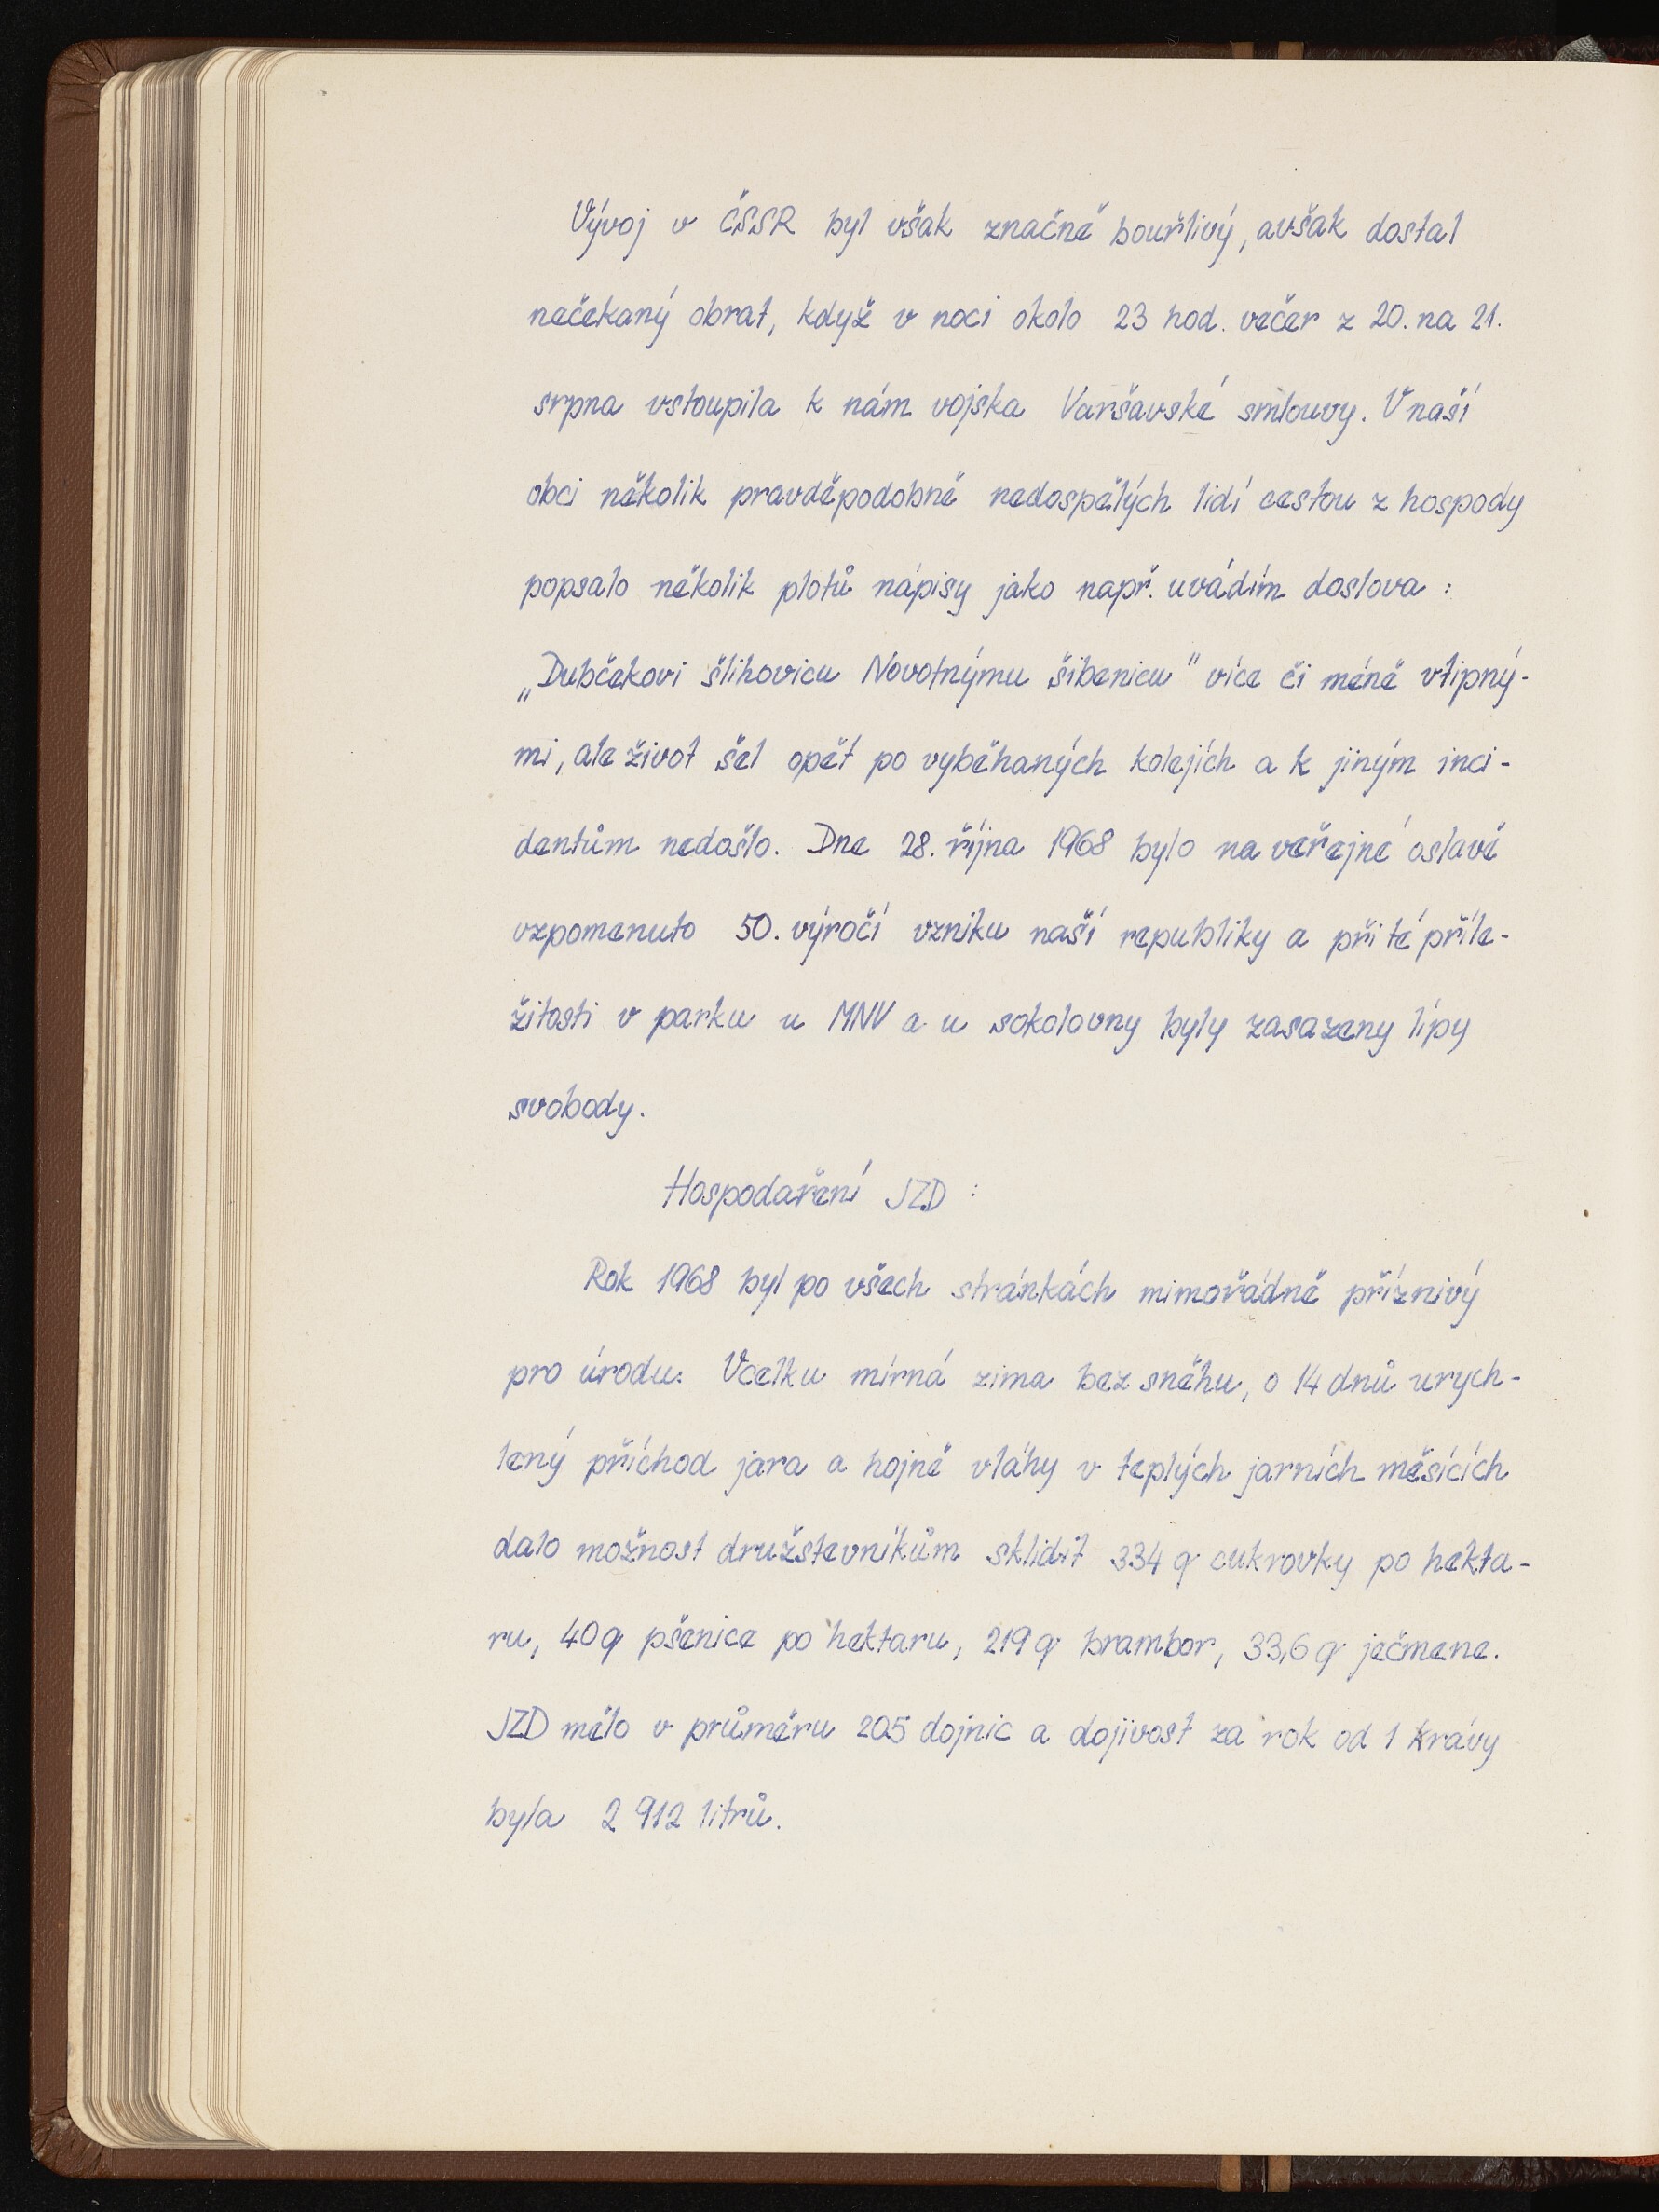 Vývoj v ČSSR byl však značně bouřlivý, avšak dostal
nečekaný obrat, když v noci okolo 23 hod. večer z 20. na 21.
srpna vstoupila k nám vojska Varšavské smlouvy. V naší
obci několik pravděpodobně nedospělých lidí cestou z hospody
popsalo několik plotů nápisy jako např. uvádím doslova :
„Dubčekovi šlihovicu Novotnýmu šibenicu" více či méně vtipný-
mi, ale život šel opět po vyběhaných kolejích a k jiným inci-
dentům nedošlo. Dne 28. října 1968 bylo na veřejné oslavě
vzpomenuto 50. výročí vzniku naší republiky a při té příle-
žitosti v parku u MNV a u sokolovny byly zasazeny lípy
svobody.
Hospodaření JZD :
Rok 1968 byl po všech stránkách mimořádně příznivý
pro úrodu. Vcelku mírná zima bez sněhu, o 14 dnů urych-
lený příchod jara a hojně vláhy v teplých jarních měsících
dalo možnost družstevníkům sklidit 334 q cukrovky po hekta-
ru, 40 q pšenice po hektaru, 219 q brambor, 33,6 q ječmene.
JZD mělo v průměru 205 dojnic a dojivost za rok od 1 krávy
byla 2 912 litrů.